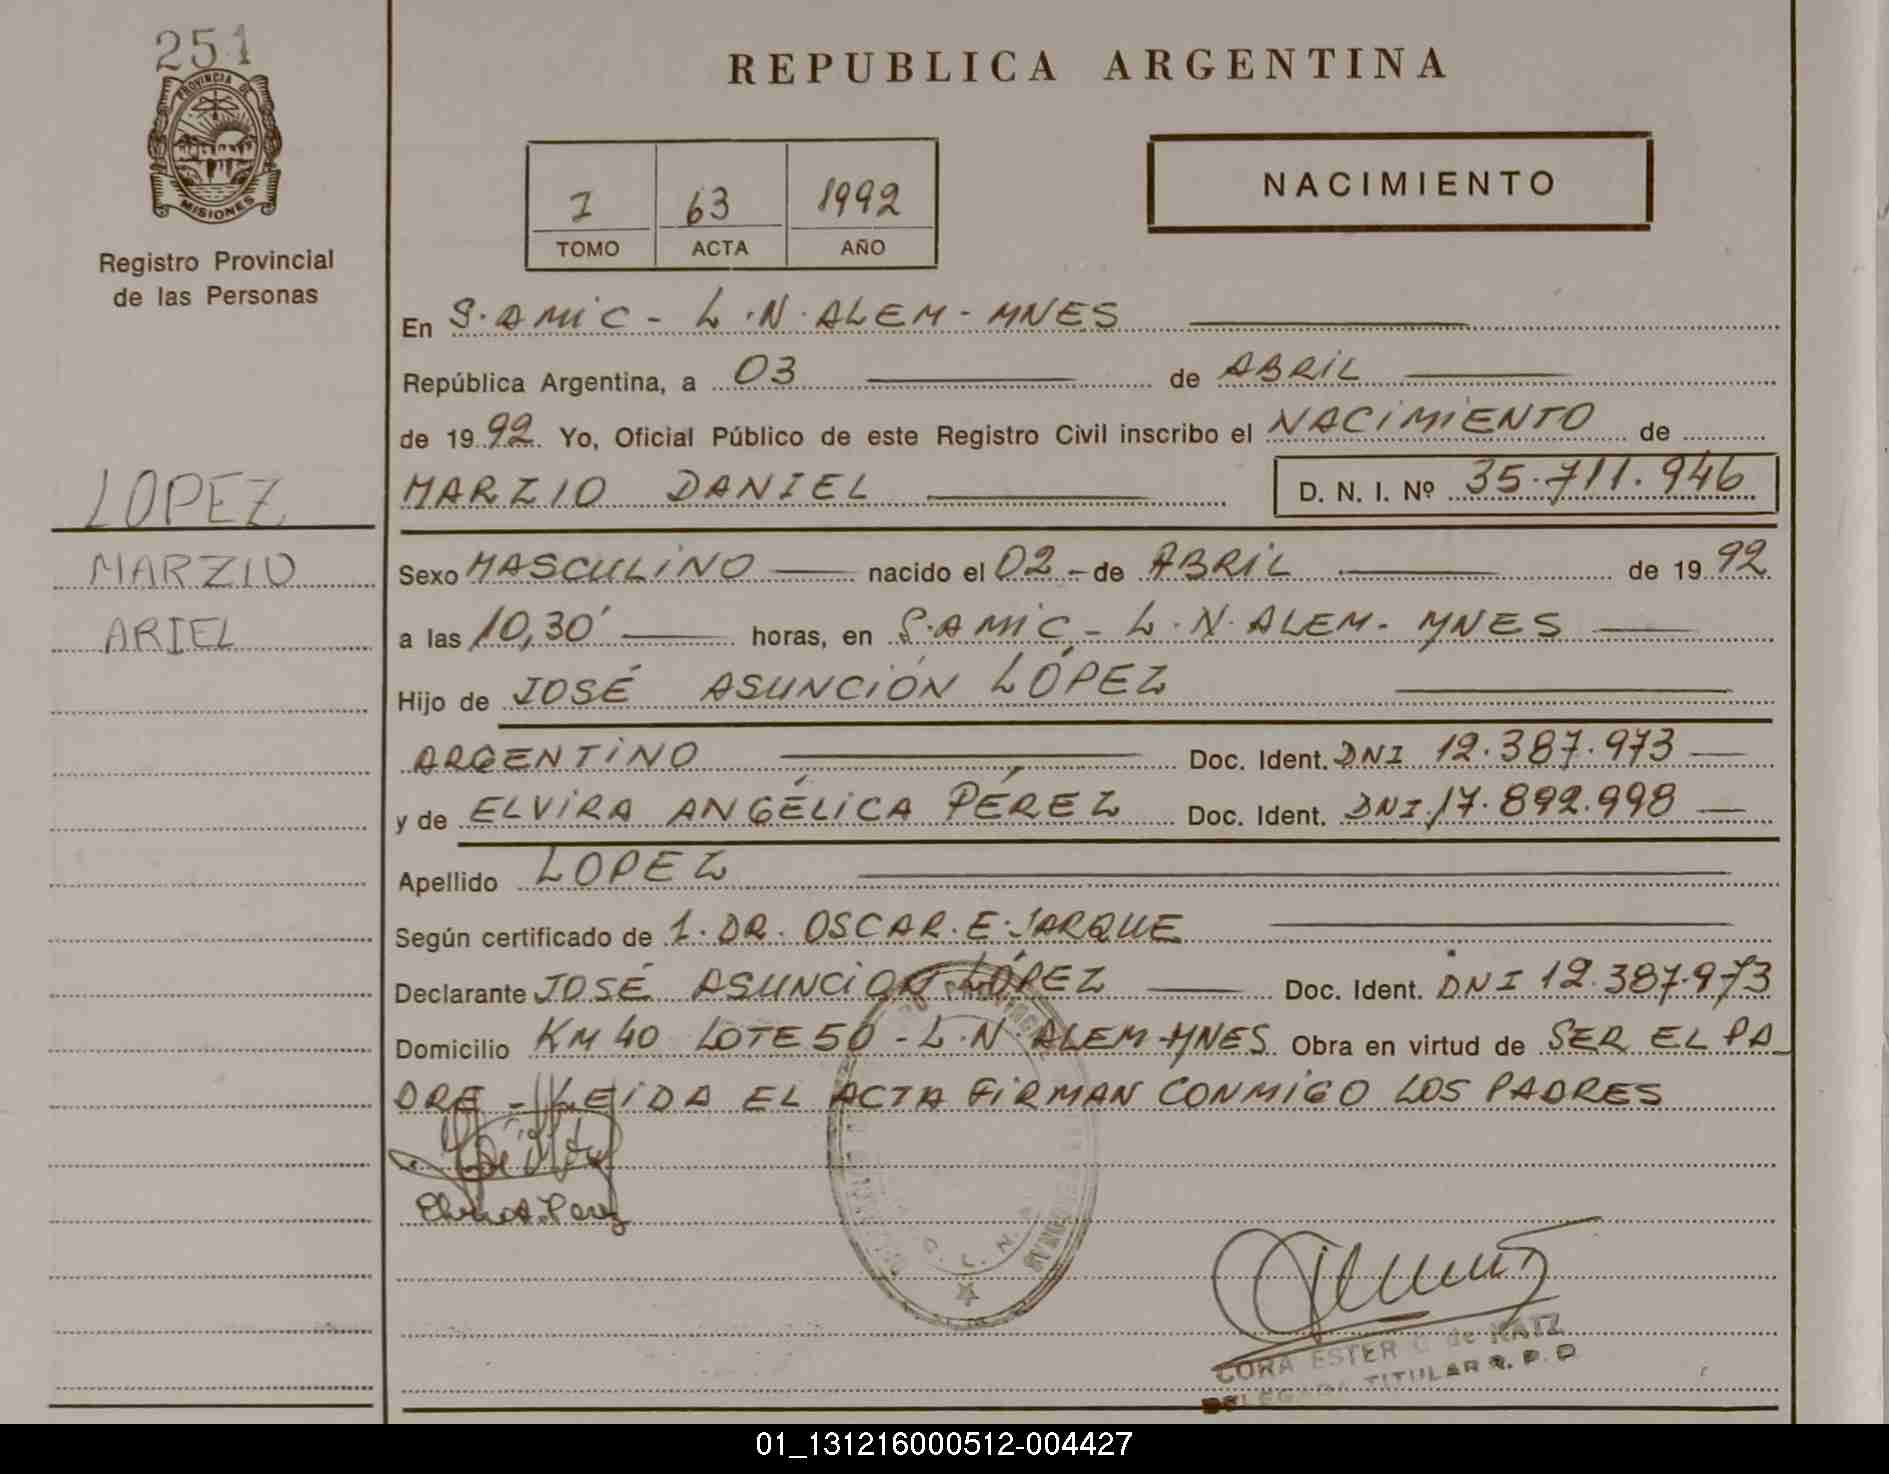 251
PROVINCIA DE
MISIONES
Registro Provincial
de las Personas
LOPEZ
MARZIO
ARIEL
REPUBLICA ARGENTINA
I 63 1992
TOMO ACTA AÑO
NACIMIENTO
En S. AMIC - L. N. ALEM - MNES
República Argentina, a 03 de ABRIL
de 1992. Yo, Oficial Público de este Registro Civil inscribo el NACIMIENTO de
MARZIO DANIEL D. N. I. Nº 35.711.946
Sexo MASCULINO nacido el 02 - de ABRIL de 1992
a las 10,30' horas, en S. AMIC - L. N. ALEM - MNES
Hijo de JOSÉ ASUNCIÓN LÓPEZ
ARGENTINO Doc. Ident. DNI 12.387.973
y de ELVIRA ANGÉLICA PÉREZ Doc. Ident. DNI 17.892.998
Apellido LOPEZ
Según certificado de 1. DR. OSCAR. E. JARQUE
Declarante JOSÉ ASUNCIÓN LÓPEZ Doc. Ident. DNI 12.387.973
Domicilio KM 40 LOTE 50 - L. N ALEM - MNES. Obra en virtud de SER EL PA_
DRE - LEIDA EL ACTA FIRMAN CONMIGO LOS PADRES
Elvira A. Perez
CORA ESTER C de KATZ
DELEGADA TITULAR R. P. P
01_131216000512-004427